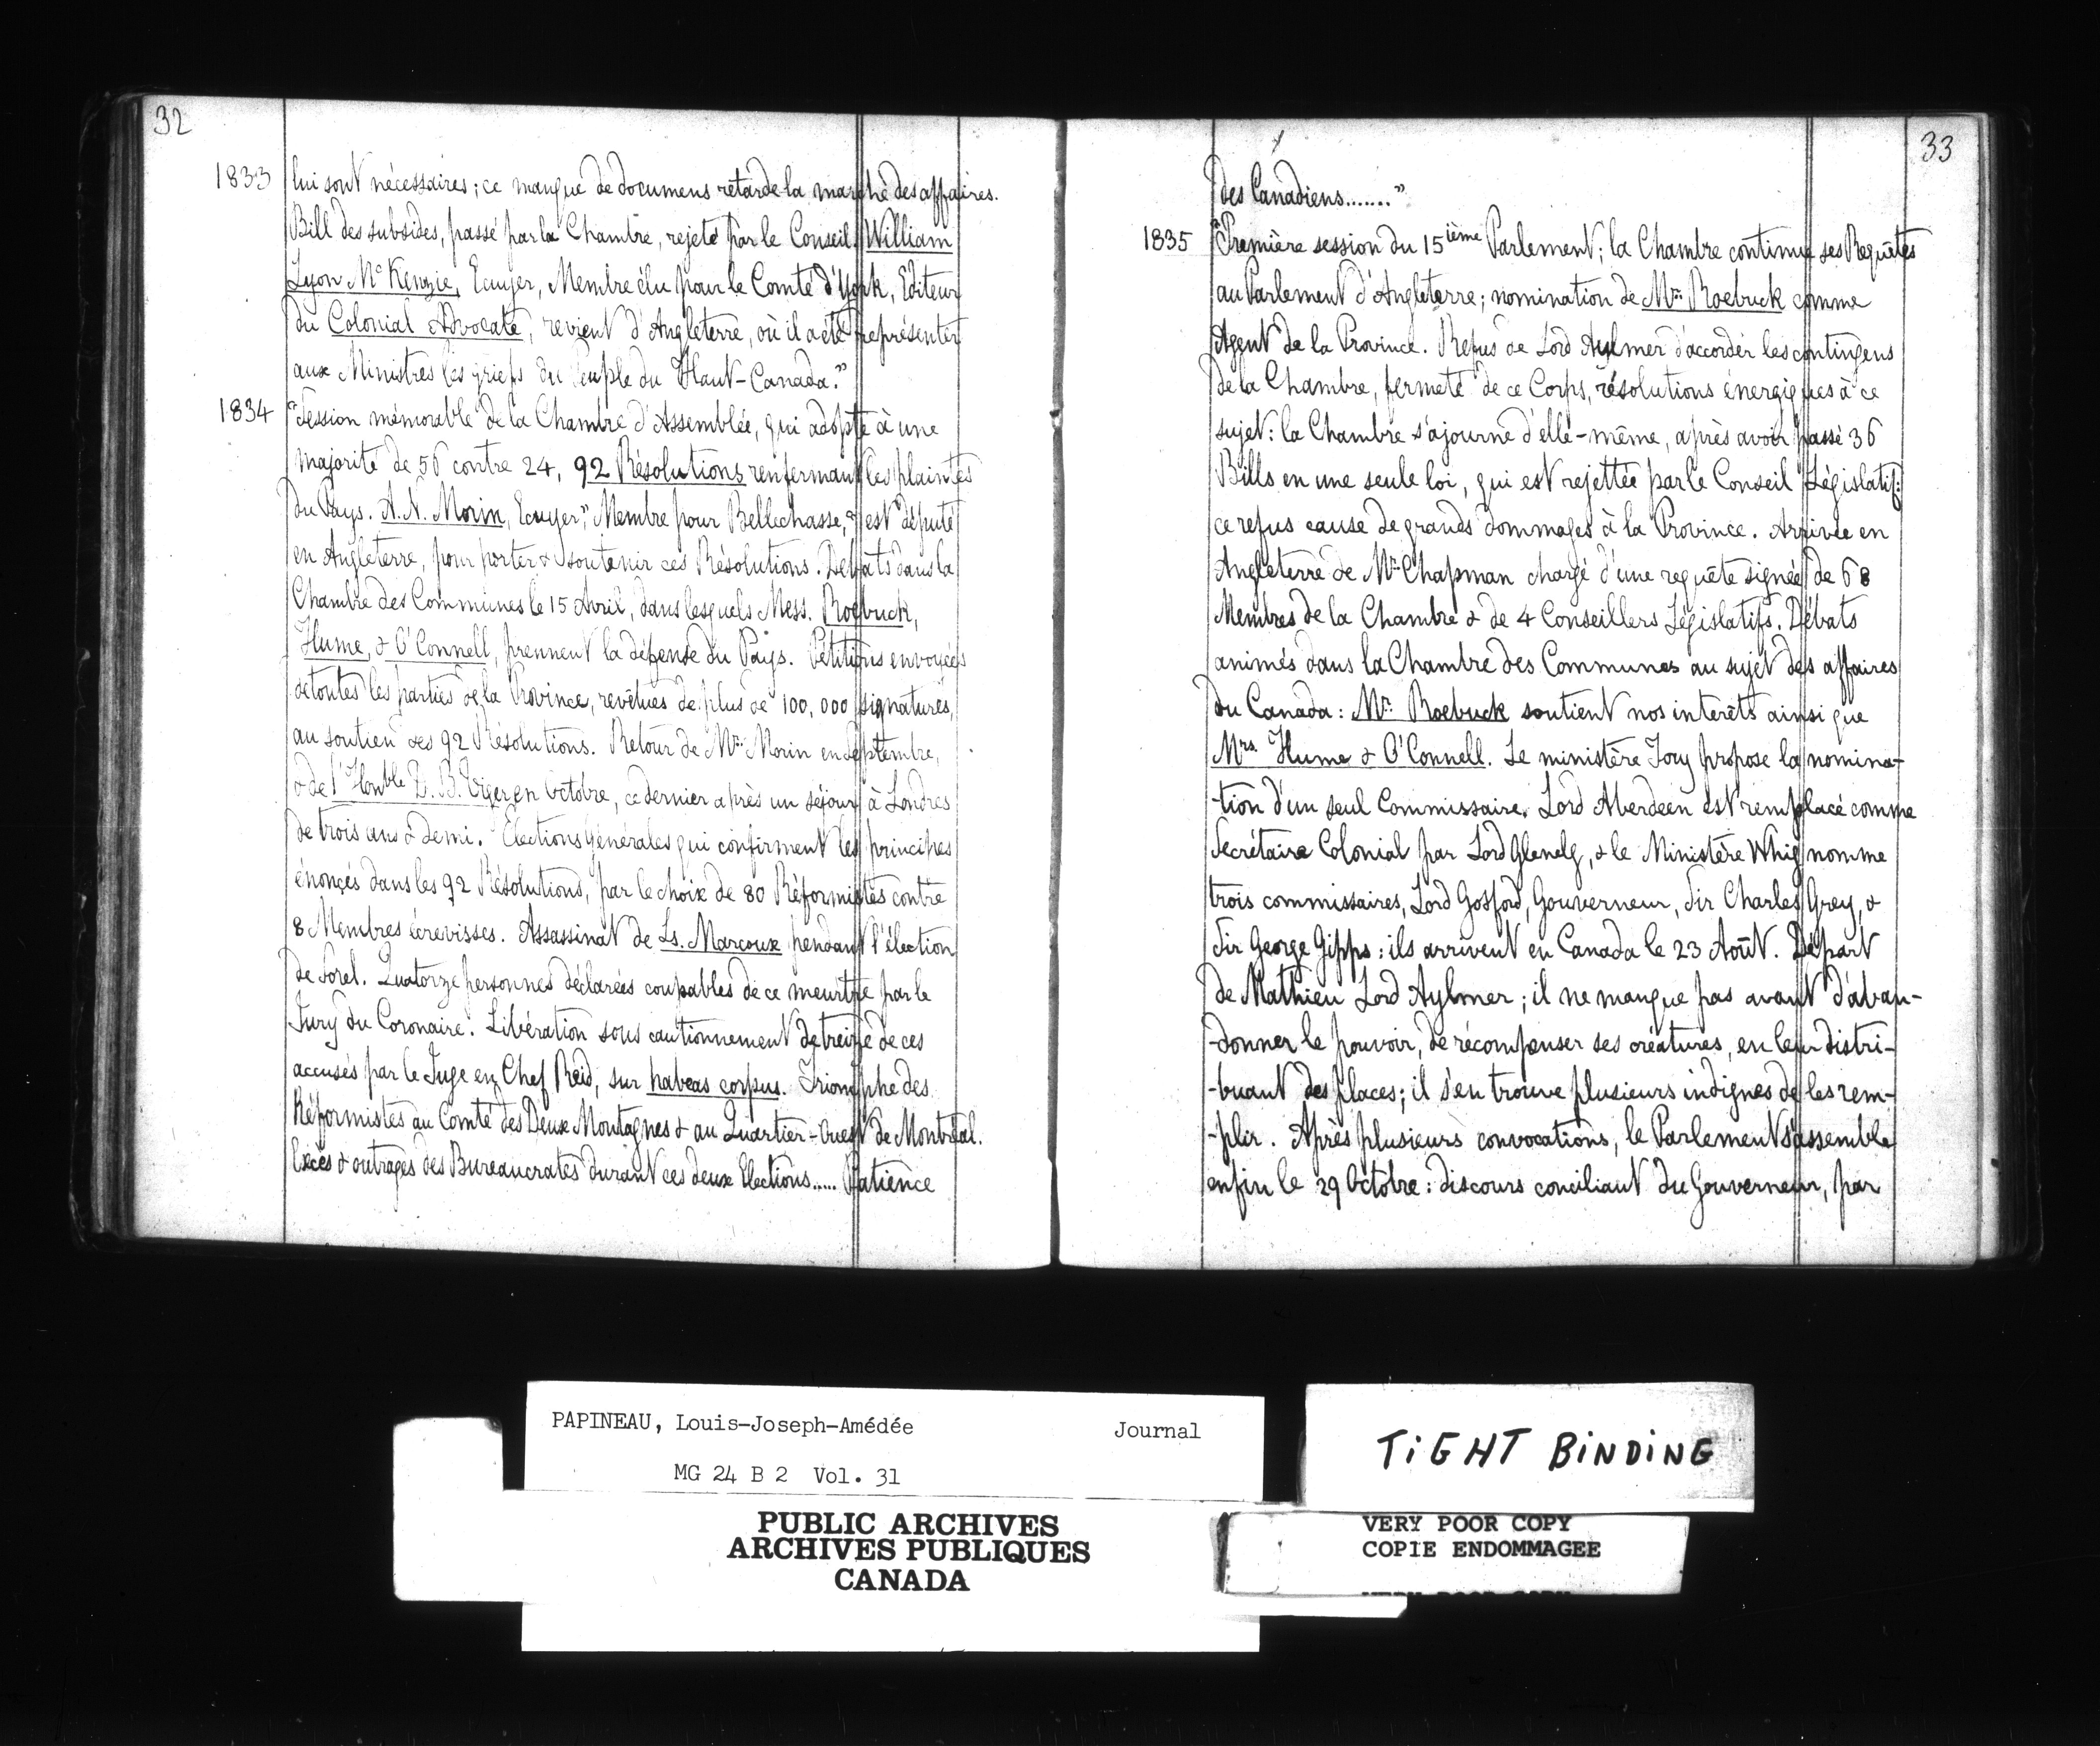 32
1833 lui sont nécessaires; ce manque de documens retarde la marche des affaires.
Bill des subsides, passé par la Chambre, rejeté par le Conseil. William
Lyon McKenzie, Ecuyer, Membre élu pour le Comté d'York, Editeur
du Colonial Advocate, revient d'Angleterre, où il a été représenter
aux Ministres les griefs du Peuple du Haut-Canada."
1834 "Session mémorable de la Chambre d'Assemblée, qui adopte à une
majorité de 56 contre 24, 92 Résolutions renfermant les plaintes
du Pays. A. N. Morin, Ecuyer, Membre pour Bellechasse, est député
en Angleterre, pour porter & soutenir ces Résolutions. Débats dans la
Chambre des Communes le 15 Avril, dans lesquels Mess. Roebuck,
Hume, & O'Connell, prennent la défense du Pays. Pétitions envoyées
de toutes les parties de la Province, revêtues de plus de 100,000 signatures,
au soutien des 92 Résolutions. Retour de Mr. Morin en Septembre,
& de l'Honble D. B. Viger en Octobre, ce dernier après un séjour à Londres
de trois ans & demi. Elections Générales qui confirment les principes
énonçés dans les 92 Résolutions, par le choix de 80 Réformistes contre
8 Membres écrevisses. Assassinat de Ls. Marcoux pendant l'élection
de Sorel. Quatorze personnes déclarées coupables de ce meurtre par le
Jury du Coronaire. Libération sous cautionnement de treize de ces
accusés par le Juge en Chef Reid, sur habeas corpus. Triomphe des
Réformistes au Comté des Deux Montagnes & au Quartier-Ouest de Montréal.
Excès & outrages des Bureaucrates durant ces deux Elections..... Patience
33
des Canadiens......."
1835 "Première session du 15ième Parlement; la Chambre continue ses Requêtes
au Parlement d'Angleterre; nomination de Mr. Roebuck comme
Agent de la Province. Refus de Lord Aylmer d'accorder les contingens
de la Chambre, fermeté de ce Corps, résolutions énergiques à ce
sujet: la Chambre s'ajourne d'elle-même, après avoir passé 36
Bills en une seule loi, qui est rejettée par le Conseil Législatif:
ce refus cause de grands dommages à la Province. Arrivée en
Angleterre de Mr. Chapman chargé d'une requête signée de 68
Membres de la Chambre & de 4 Conseillers Législatifs. Débats
animés dans la Chambre des Communes au sujet des affaires
du Canada: Mr. Roebuck soutient nos intérêts ainsi que
Mrs. Hume & O'Connell. Le ministère Tory propose la nomina-
-tion d'un seul Commissaire. Lord Aberdeen est remplacé comme
Secrétaire Colonial par Lord Glenelg, & le Ministère Whig nomme
trois commissaires, Lord Gosford, Gouverneur, Sir Charles Grey, &
Sir George Gipps: ils arrivent en Canada le 23 Août. Départ
de Mathieu Lord Aylmer; il ne manque pas avant d'aban-
-donner le pouvoir, de récompenser ses créatures, en leur distri-
-buant des places; il s'en trouve plusieurs indignes de les rem-
-plir. Après plusieurs convocations, le Parlement s'assemble
enfin le 29 Octobre: discours conciliant du Gouverneur, par
PAPINEAU, Louis-Joseph-Amédée Journal
MG 24 B 2 Vol. 31
PUBLIC ARCHIVES
ARCHIVES PUBLIQUES
CANADA
TIGHT BINDING
VERY POOR COPY
COPIE ENDOMMAGEE